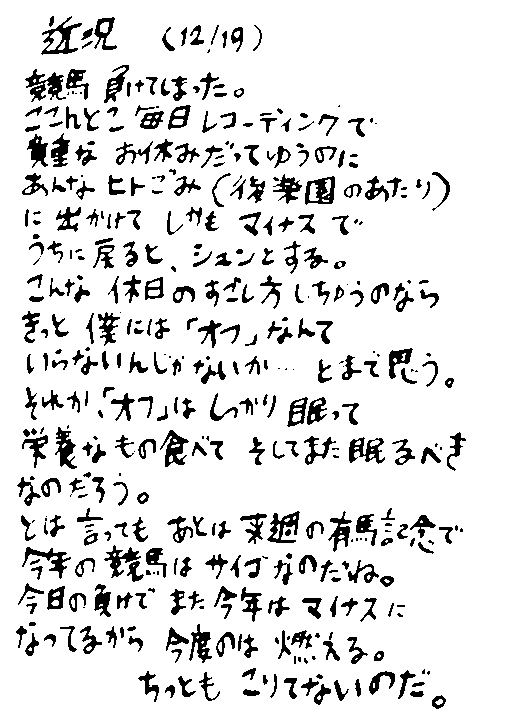 近況 (12/19)
競馬 負けてしまった。
ここんとこ 毎日 レコーディングで
貴重な お休みだってゆうのに
あんな ヒトごみ(後楽園のあたり)
に 出かけて しかも マイナスで
うちに 戻ると、シュンとする。
こんな 休日の すごし方 しちゃうのなら
きっと 僕には「オフ」なんて
いらないんじゃないか… とまで思う。
それか、「オフ」は しっかり 眠って
栄養なもの食べて そしてまた 眠るべき
なのだろう。
とは 言っても あとは 来週の有馬記念で
今年の 競馬は サイゴなのだね。
今日の負けで また 今年は マイナスに
なってるから 今度のは 燃える。
ちっとも こりてないのだ。